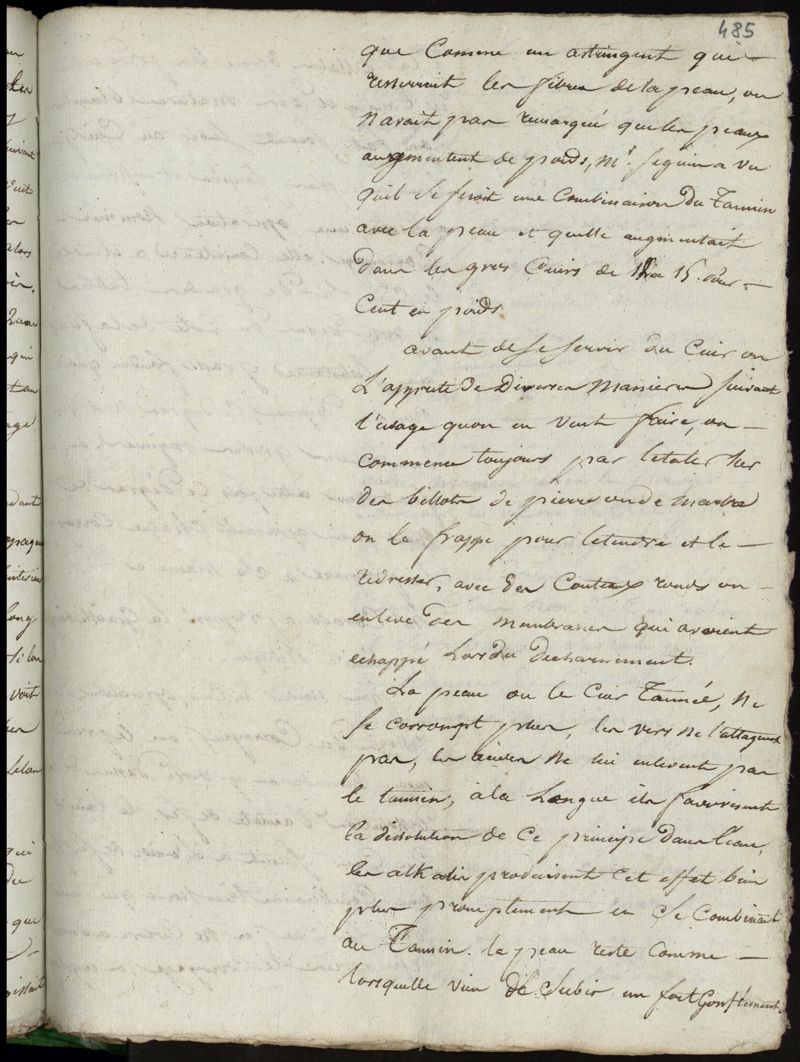 485
que comme un astringent qui
resserrait les fibres de la peau, on
navait pas remarqué que les peaux
augmentent de poids, Mr. Seguin a vu
quil se feroit une combinaison du Tannin
avec la peau et quelle augmentait
dans les gros Cuirs de a 15. pour
Cent en poids
avant de se servir du Cuir on
L'apprete de diverses manieres suivant
l'usage quon en veut faire, on
commence toujours par letaler sur
des billots de pierre ou de marbre
on le frappe pour letendre et le
redresser, avec des Couteaux ronds on
enleve des membranes qui avoient
echappé Lors du decharnement.
La peau ou le Cuir Tanné, ne
se corrompt plus, les vers ne l'attaquent
pas, les acides ne lui enlevent pas
le tannin, a la Longue ils favorisent
la dissolution de ce principe dans l'eau,
les alkalis produisent cet effet bien
plus promptement en se combinant
au Tannin. la peau reste comme
lorsquelle vien de subir un fort Gonflement